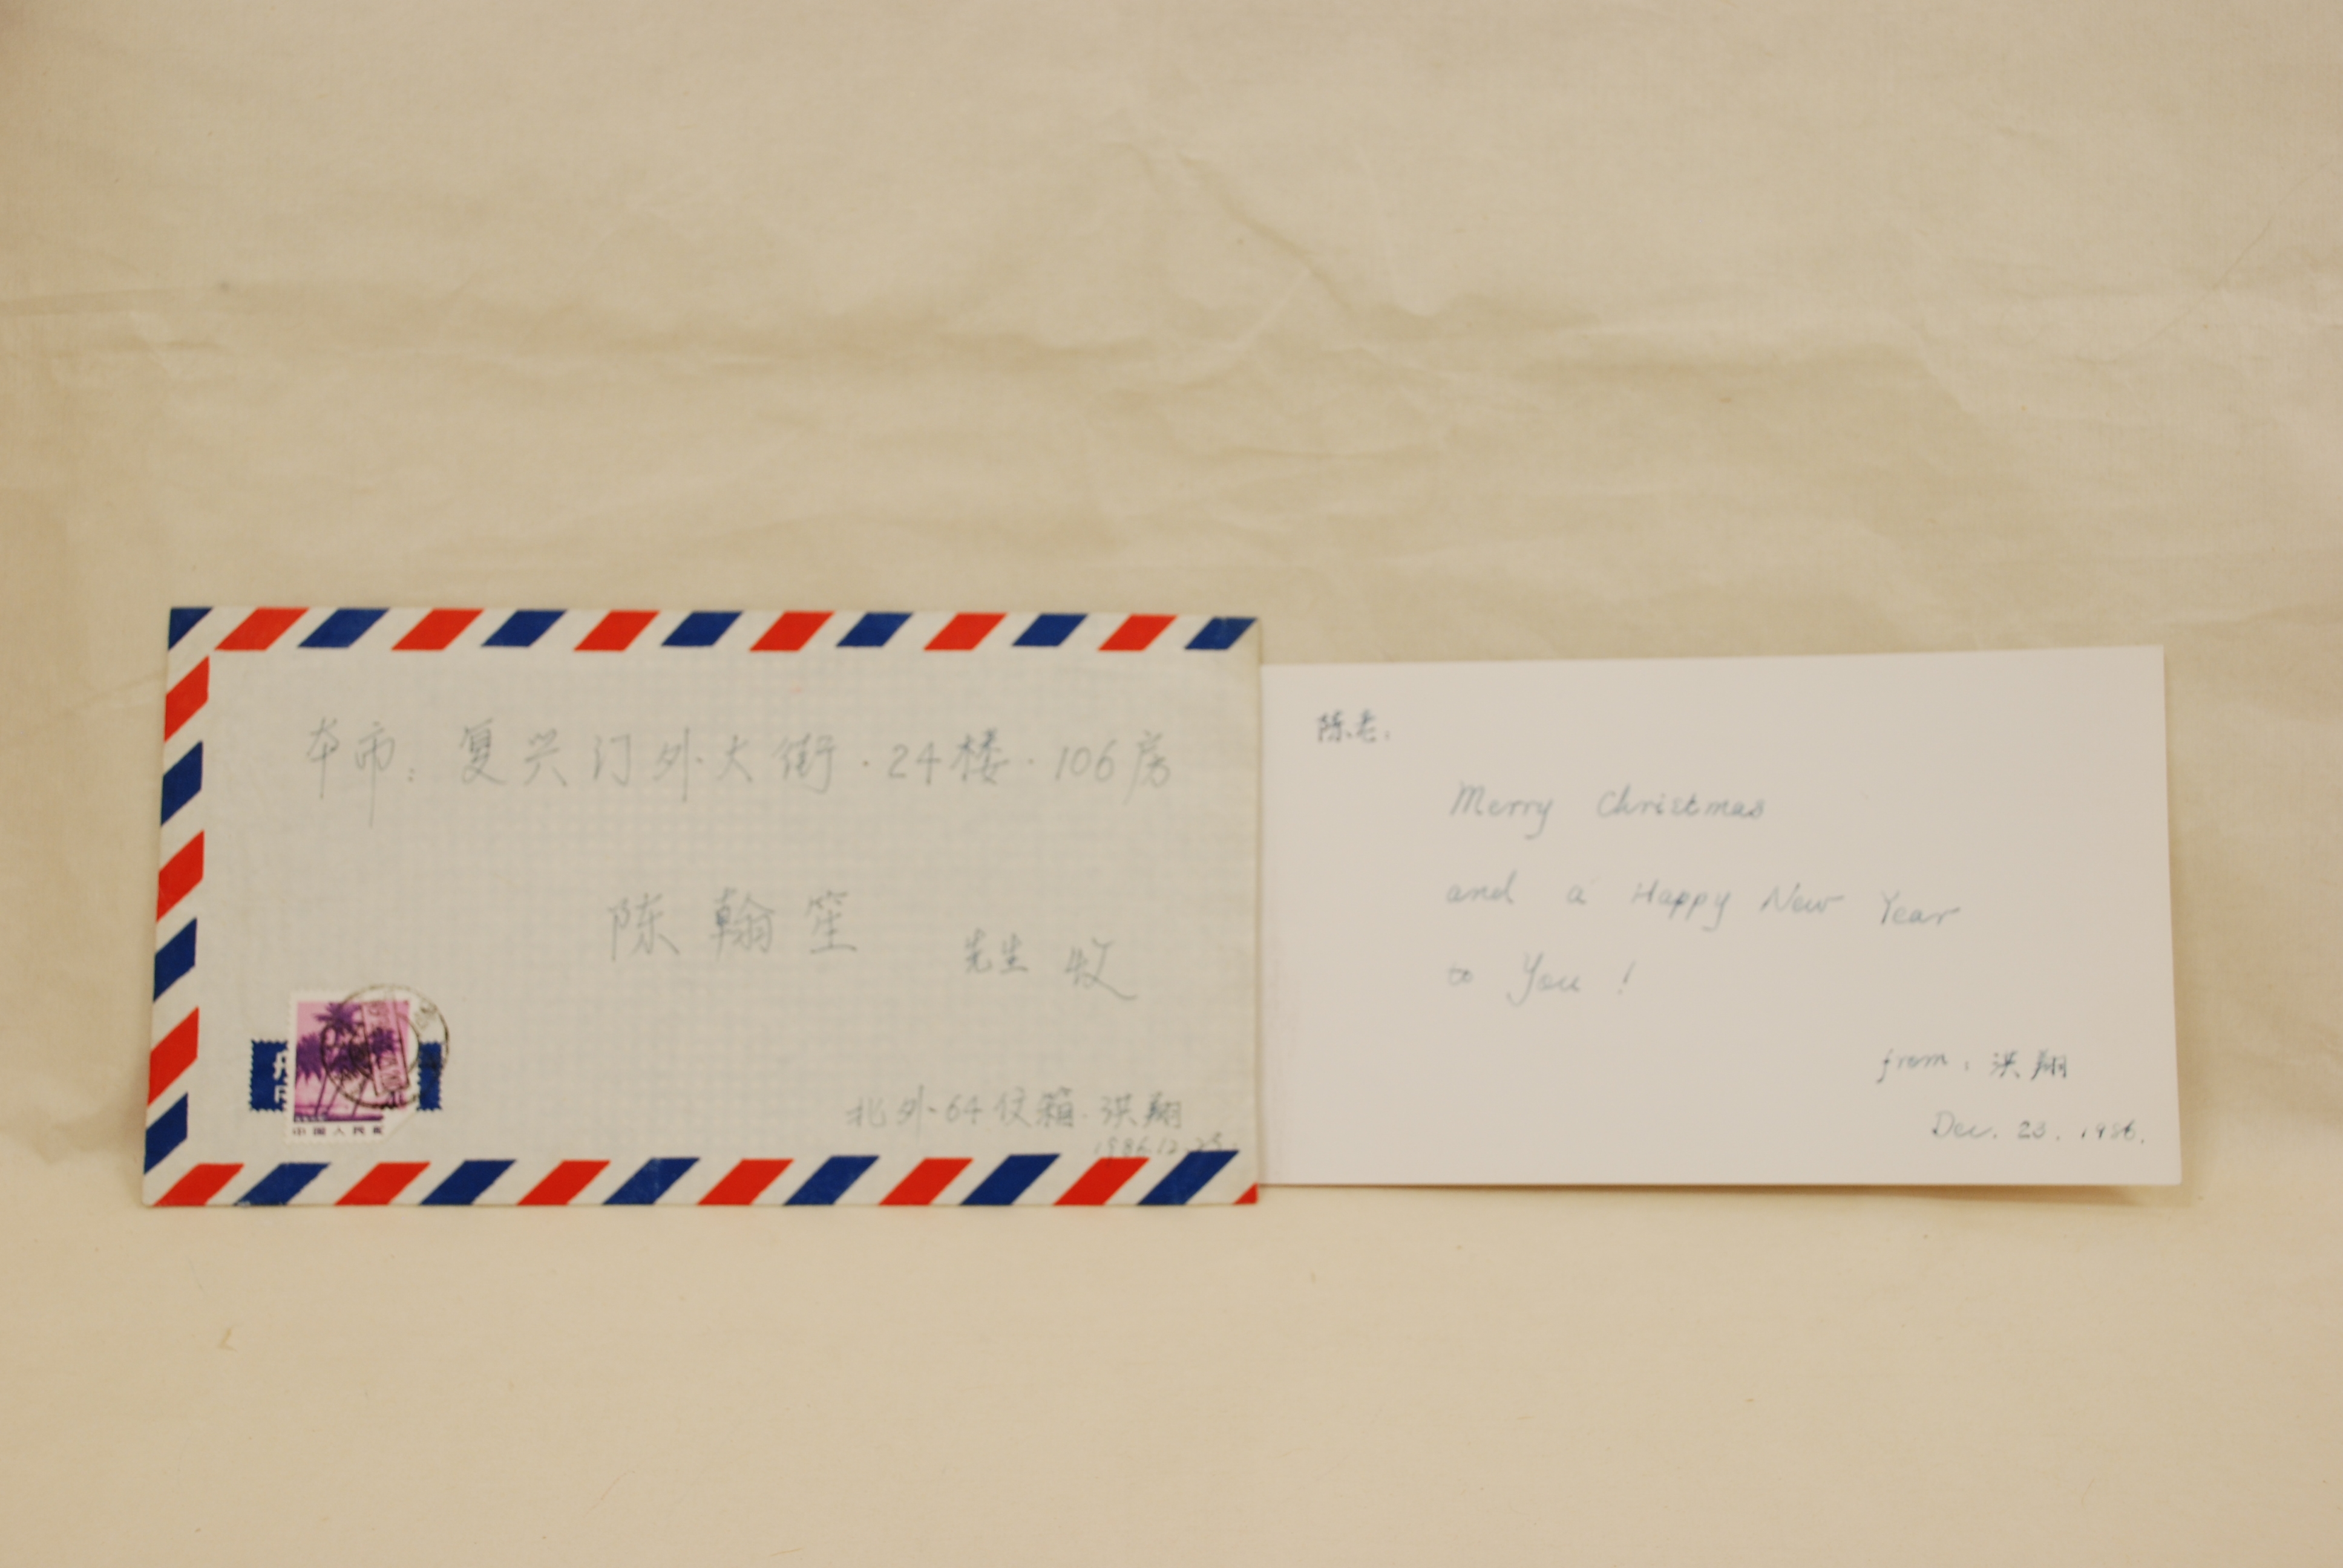 本市：复兴门外大街·24楼·106房
陈翰笙 先生 收
北外·64信箱·洪翔
1986.12.23
中国人民
陈老：
Merry Christmas
and a Happy New Year
to You !
from：洪翔
Dec. 23. 1986.